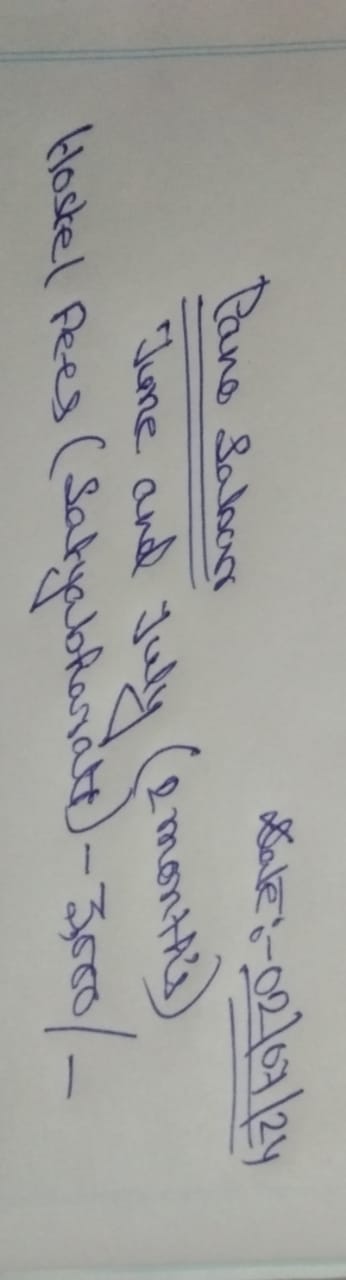 Date:-02/07/24
Pano Sabar
June and July (2 month's)
Hostel Fees (Satyabharati) - 3,000/-